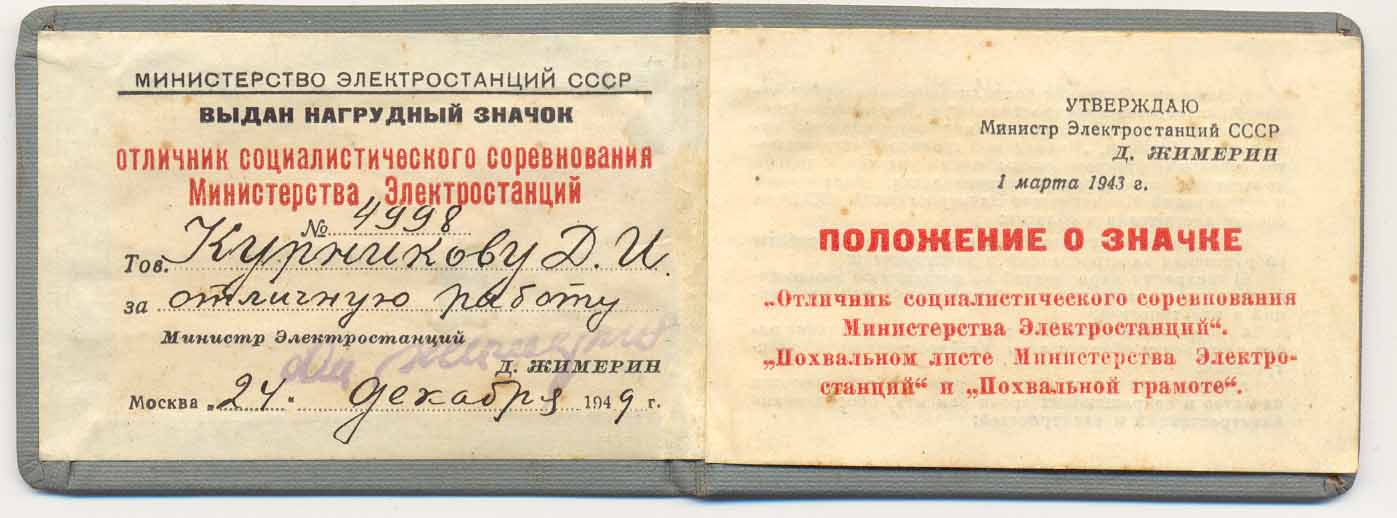 МИНИСТЕРСТВО ЭЛЕКТРОСТАНЦИЙ СССР
ВЫДАН НАГРУДНЫЙ ЗНАЧОК
ОТЛИЧНИК СОЦИАЛИСТИЧЕСКОГО СОРЕВНОВАНИЯ
Министерства Электростанций
№ 4998
Тов. Курникову Д. И.
за отличную работу
Министр Электростанций
Д. ЖИМЕРИН
Москва „24“ декабря 1949 г.
УТВЕРЖДАЮ
Министр Электростанций СССР
Д. ЖИМЕРИН
1 марта 1943 г.
ПОЛОЖЕНИЕ О ЗНАЧКЕ
„Отличник социалистического соревнования
Министерства Электростанций“.
„Похвальном листе Министерства Электро-
станций“ и „Похвальной грамоте“.